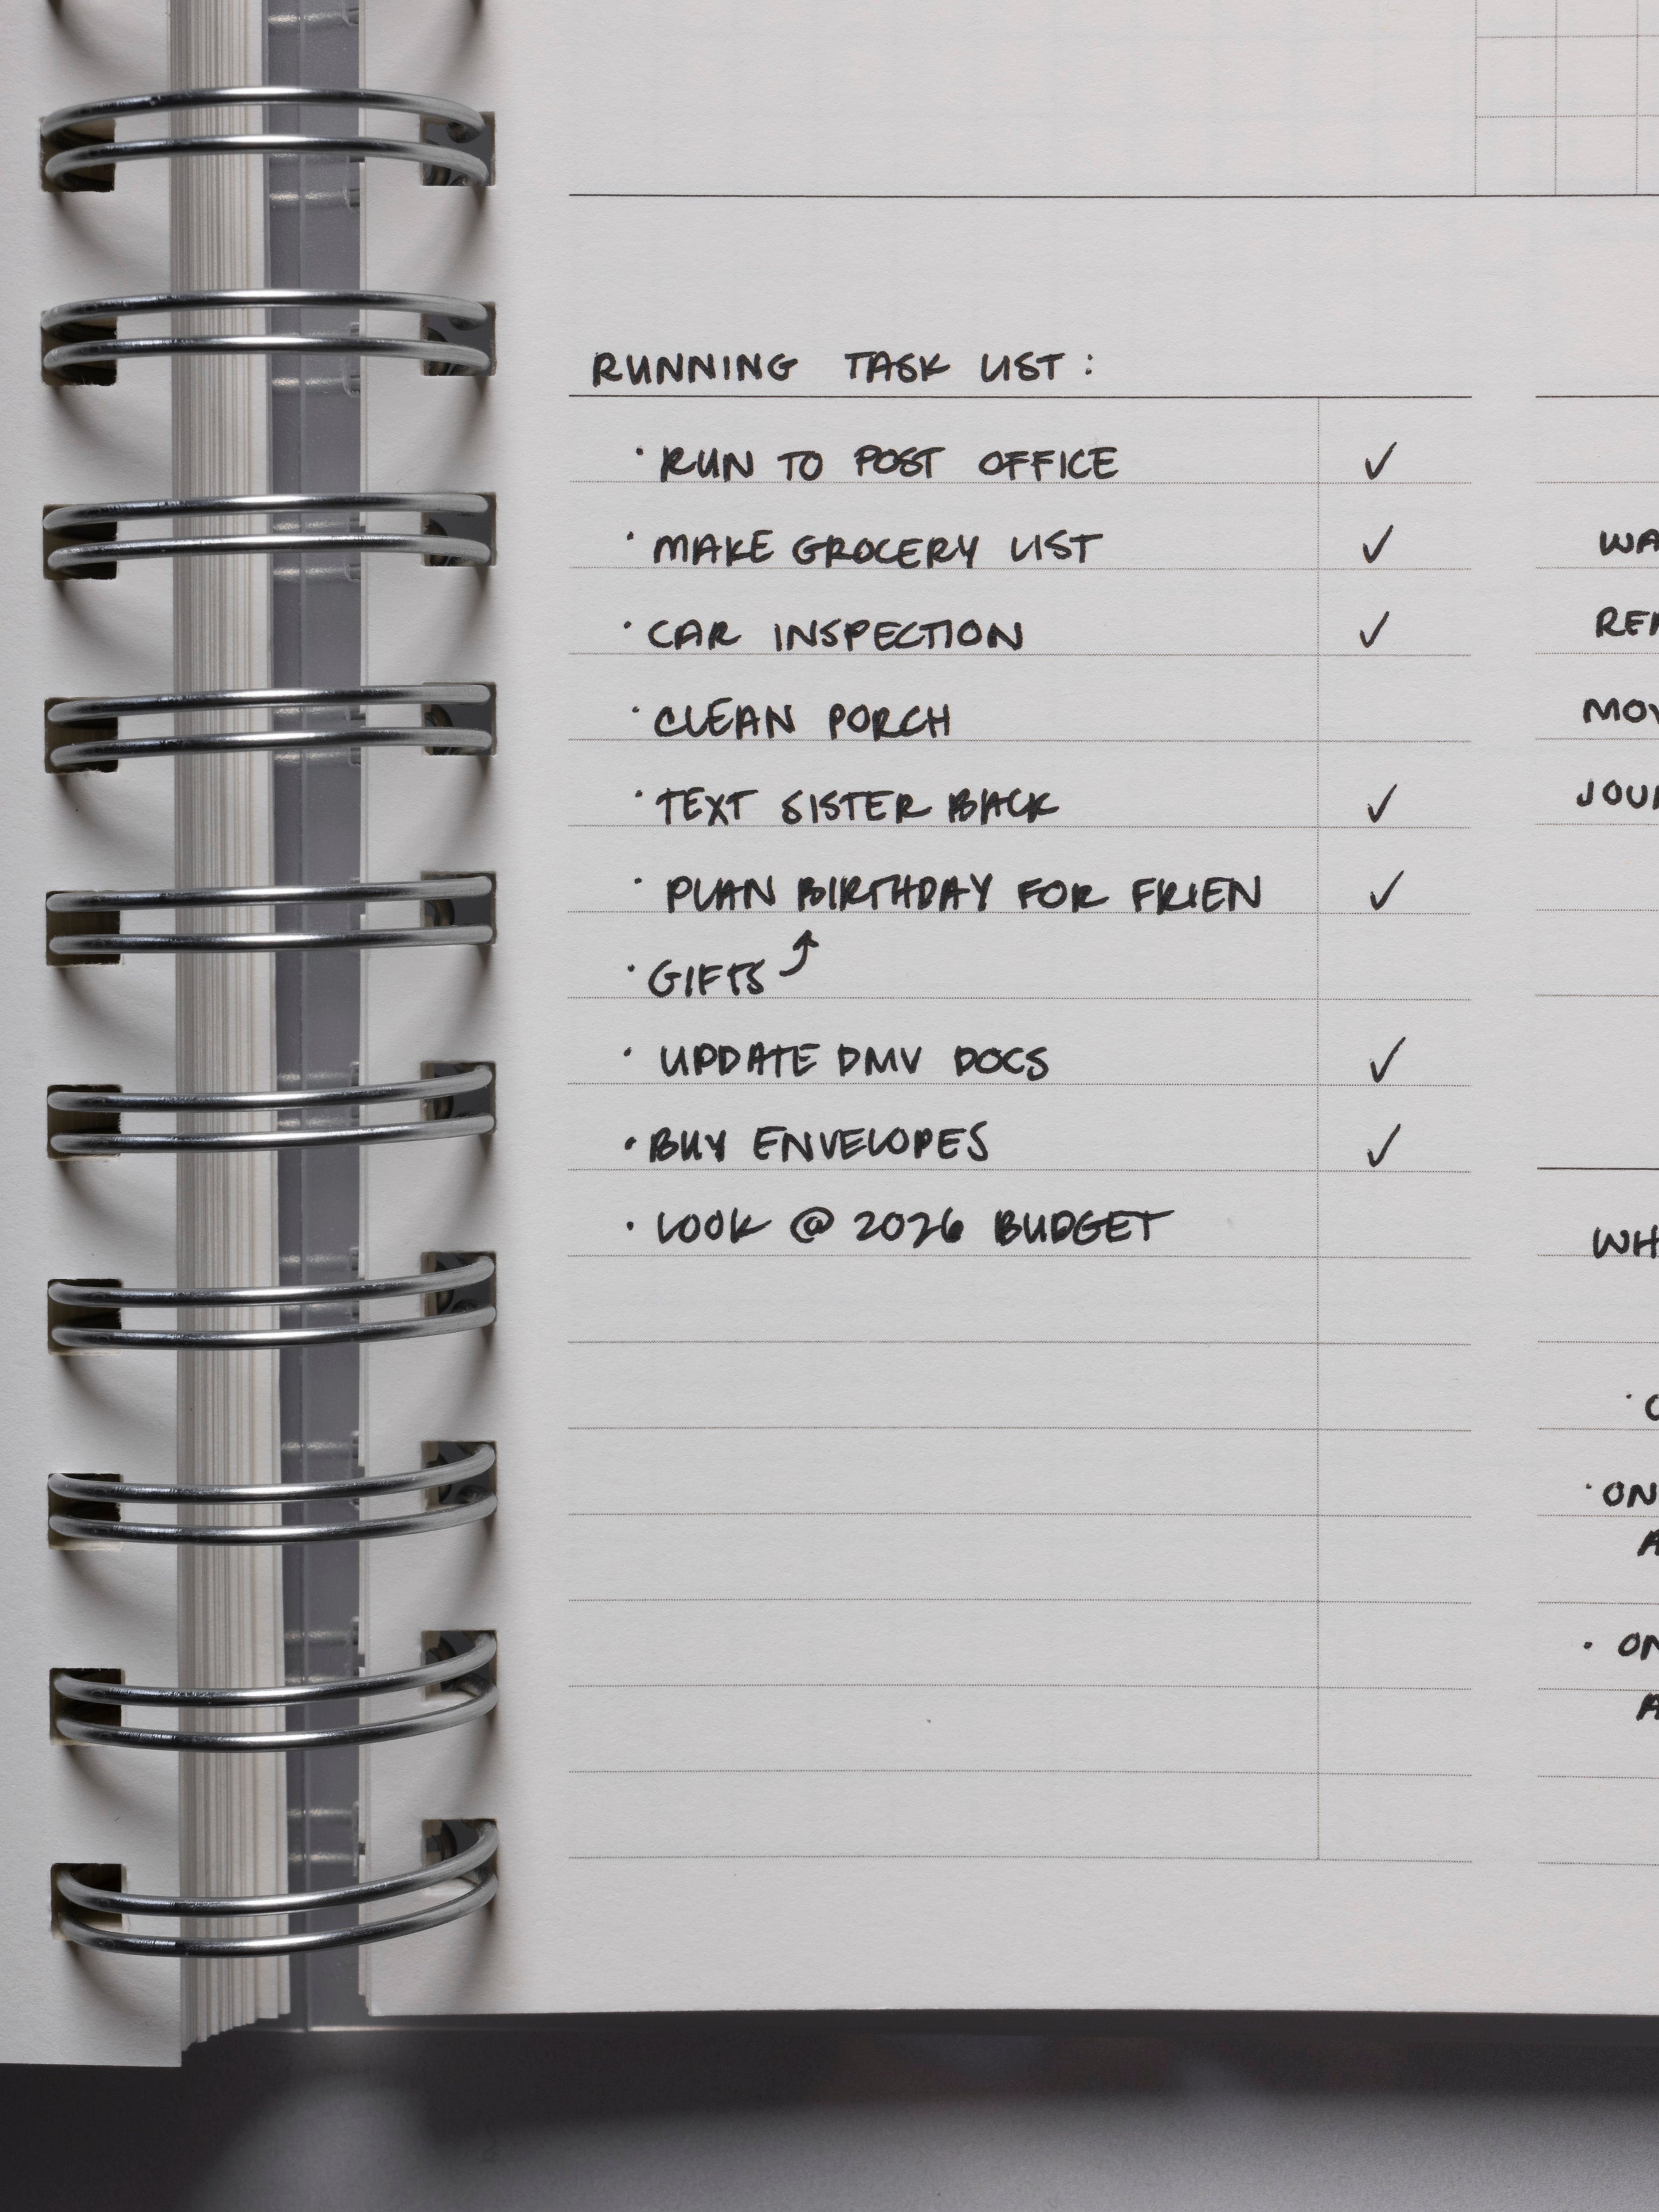 RUNNING TASK LIST :
· RUN TO POST OFFICE ✓
· MAKE GROCERY LIST ✓
· CAR INSPECTION ✓
· CLEAN PORCH
· TEXT SISTER BACK ✓
· PLAN BIRTHDAY FOR FRIEN ✓
· GIFTS ⤴
· UPDATE DMV DOCS ✓
· BUY ENVELOPES ✓
· LOOK @ 2026 BUDGET
· ON
· ON